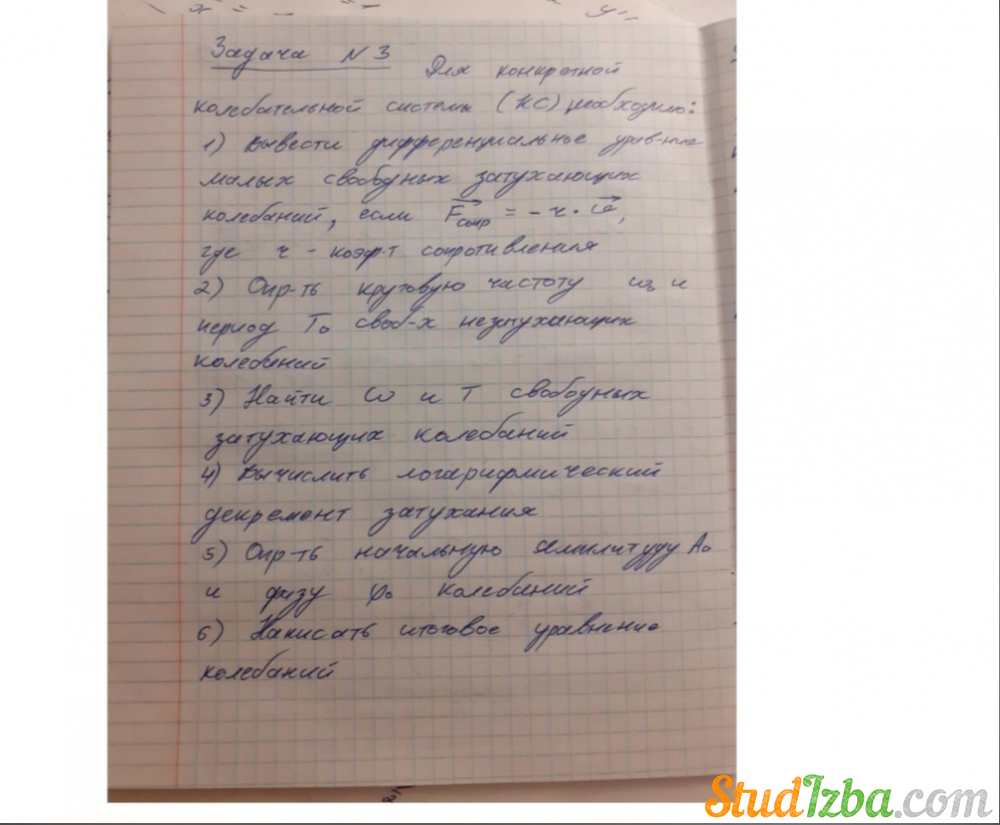 Задача N 3
Для конкретной
колебательной системы (КС) необходимо:
1) Вывести дифференциальное урав-ние
малых свободных затухающих
колебаний, если Fсопр = - r · v,
где r - коэф-т сопротивления
2) Опр-ть круговую частоту и
период T₀ своб-х незатухающих
колебаний
3) Найти ω и T свободных
затухающих колебаний
4) Вычислить логарифмический
декремент затухания
5) Опр-ть начальную амплитуду A₀
и фазу φ₀ колебаний
6) Написать итоговое уравнение
колебаний
StudIzba.com